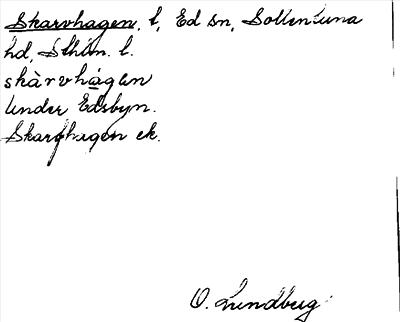 Skarvhagen. t, Ed sn, Sollentuna
hd, Sthlm. l.
skàrvhagen
Under Edsbyn.
Skarfhagen ek.
O. Lundberg